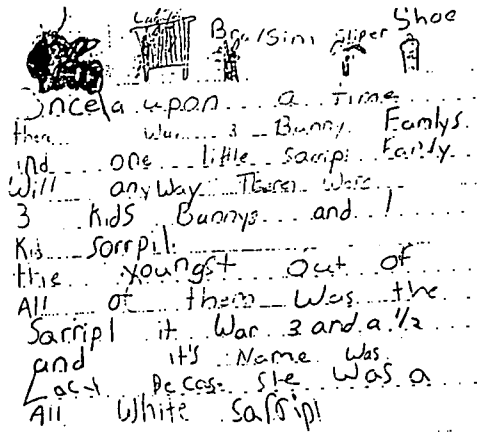 Shoe
Once a upon a Time
there was 3 Bunny Famlys.
and one little sarripl Famly
Will anyWay There were
3 Kids Bunnys and 1
Kid sorrpil.
the youngst out of
All of them Was the
Sarripl it War 3 and a 1/2
and it's Name was
Lacy Becase She Was a
All White Sarripl